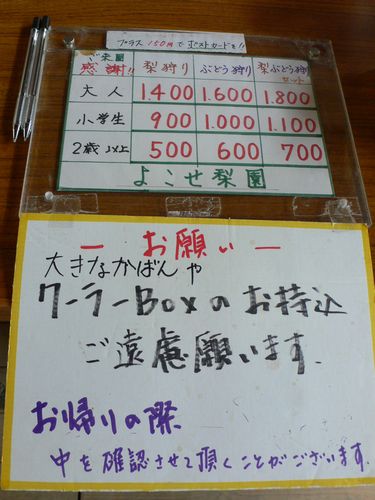 プラス150円でポストカードを!!
ご来園
感謝!! 梨狩り ぶどう狩り 梨ぶどう狩り
セット
大人 1.400 1.600 1.800
小学生 900 1.000 1.100
2歳以上 500 600 700
よこせ梨園
ー お願い ー
大きなかばんや
クーラーBoxのお持込
ご遠慮願います.
お帰りの際
中を確認させて頂くことがございます.